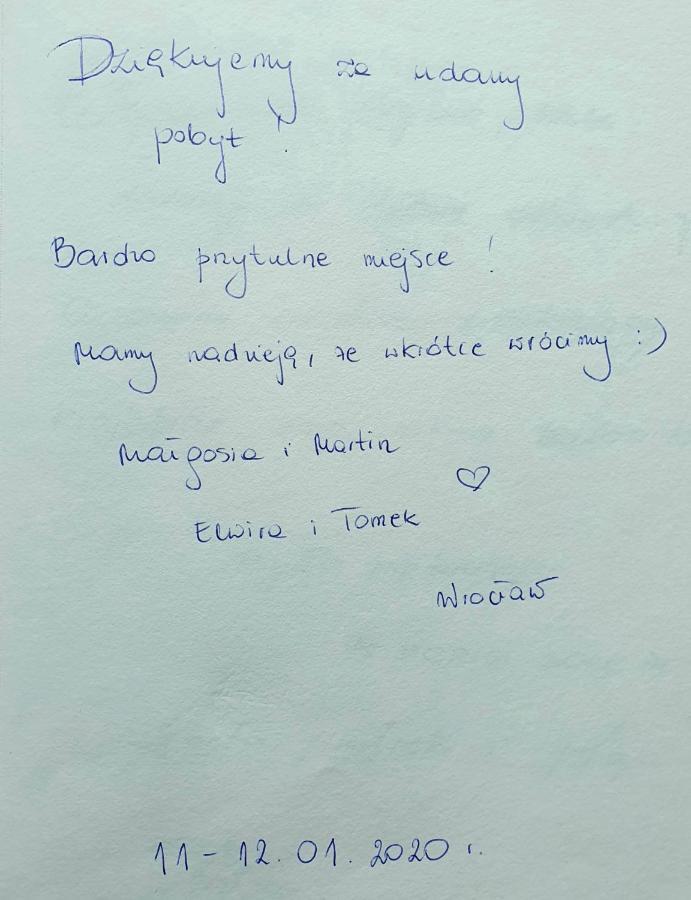 Dziękujemy za udany
pobyt!
Bardzo przytulne miejsce!
Mamy nadzieję, że wkrótce wrócimy :)
Małgosia i Martin
Elwira i Tomek
Wrocław
11-12.01.2020 r.